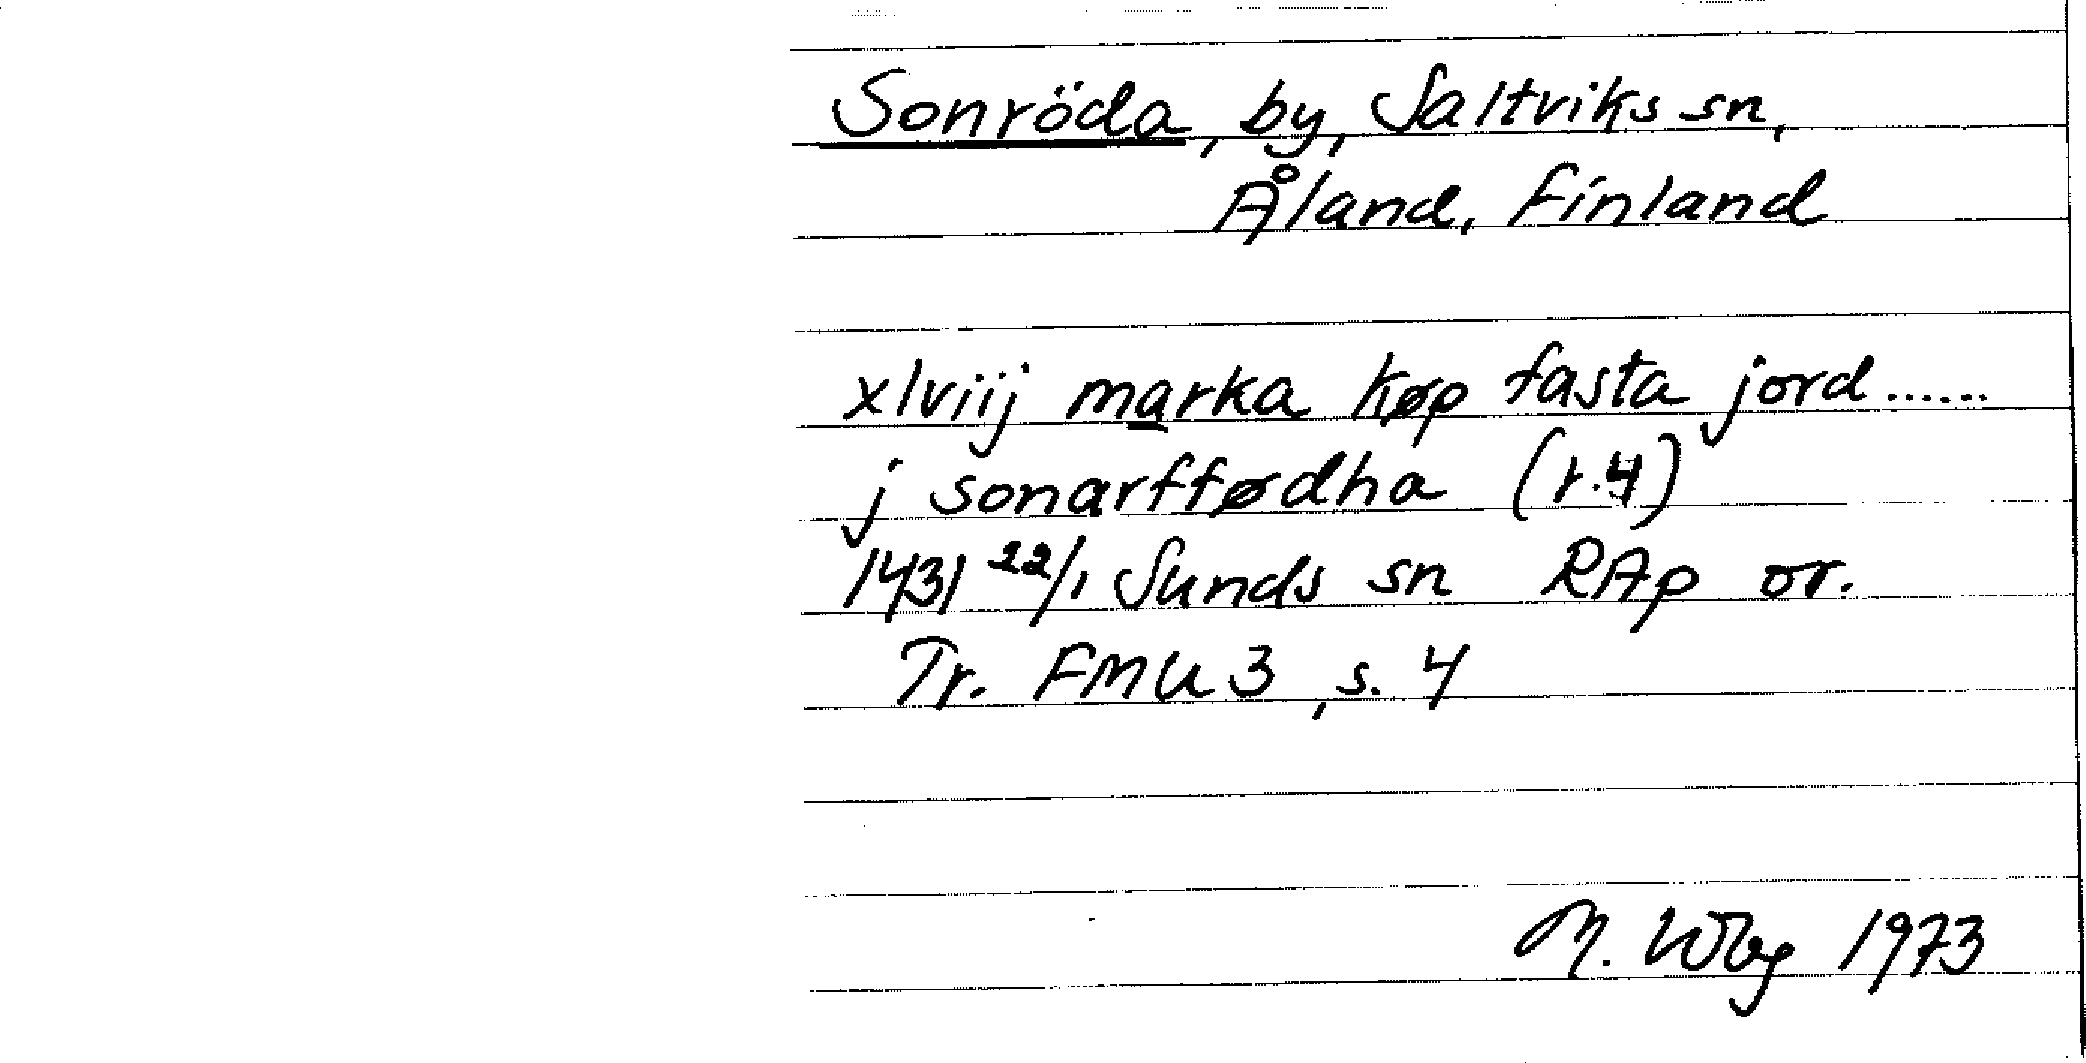 Sonröda, by, Saltviks sn,
Åland, Finland
xlviij marka køp fasta jord......
j sonarfførdha (r.4)
1431 22/1 Sunds sn RAp or.
Tr. FMU 3, s. 4
M. Wbg 1973